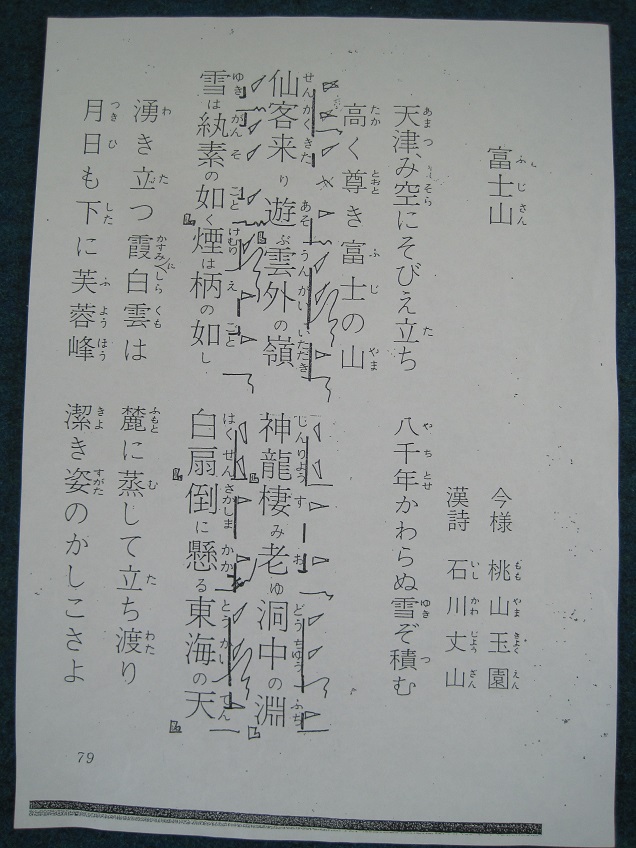 富士山
今様 桃山玉園
漢詩 石川丈山
天津み空にそびえ立ち 八千年かわらぬ雪ぞ積む
高く尊き富士の山
仙客来り遊ぶ雲外の嶺 神龍棲み老ゆ洞中の淵
雪は紈素の如く煙は柄の如し 白扇倒に懸る東海の天
湧き立つ霞白雲は 麓に蒸して立ち渡り
月日も下に芙蓉峰 潔き姿のかしこさよ
79